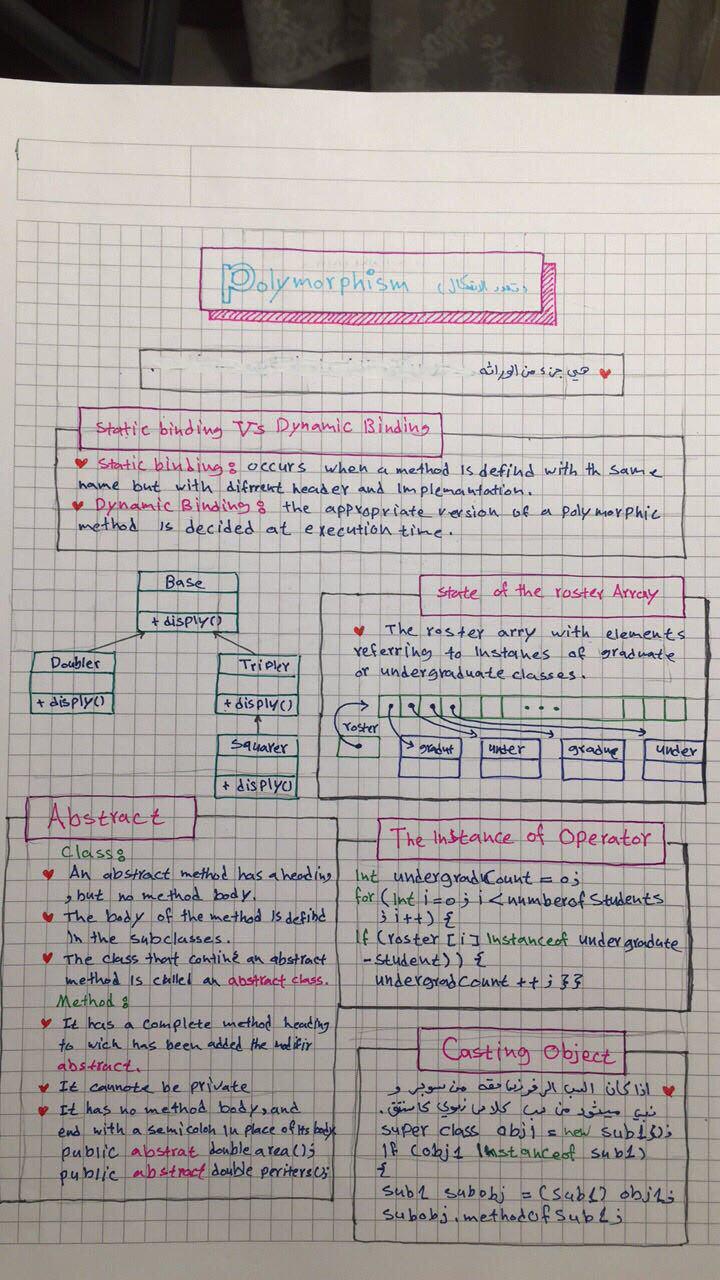 Polymorphism (تعدد الاشكال)
هي جزء من الوراثه
Static binding Vs Dynamic Binding
Static binding: occurs when a method is defind with th same
name but with difrrent header and Implemantation.
Dynamic Binding: the appropriate version of a polymorphic
method is decided at execution time.
Base
+ disply()
Doubler
+ disply()
Tripler
+ disply()
Squarer
+ disply()
State of the roster Array
The roster arry with elements
referring to Instanes of graduate
or undergraduate classes.
...
roster
gradut
under
gradue
under
Abstract
Class:
An abstract method has a heading
, but no method body.
The body of the method Is defind
In the subclasses.
The class that contine an abstract
method Is called an abstract class.
Method:
It has a complete method heading
to wich has been added the modifir
abstract.
It cannote be private
It has no method body, and
end with a semicoloh in place of Its body
public abstrat double area();
public abstract double periters();
The Instance of Operator
Int undergradCount = 0;
for (Int i=0; i < numberof Students
; i++) {
If (roster [i] Instanceof undergraduate
-Student)) {
undergradCount ++; }}
Casting Object
اذا كان
من سوبر و
من
super class obj1 = new sub1();
If (obj1 Instanceof sub1)
{
sub1 subobj = (sub1) obj1;
subobj.methodofSub1;